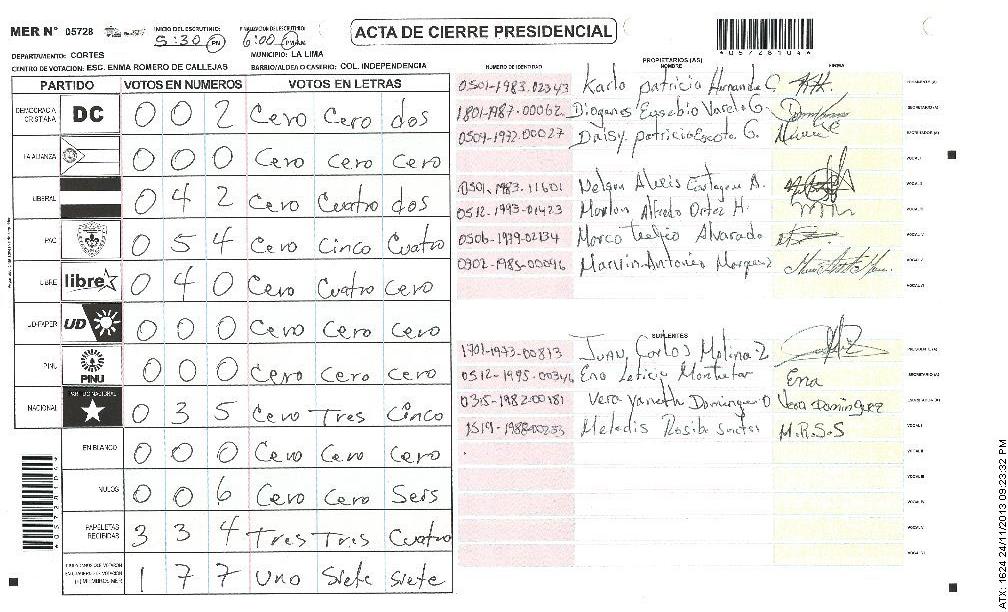 MER N° 05728
INICIO DEL ESCRUTINIO:
5:30 PM
FINALIZACION DEL ESCRUTINIO:
6:00 PM
ACTA DE CIERRE PRESIDENCIAL
*05728104*
DEPARTAMENTO: CORTES
MUNICIPIO: LA LIMA
CENTRO DE VOTACION: ESC. ENMA ROMERO DE CALLEJAS
BARRIO/ALDEA O CASERIO: COL. INDEPENDENCIA
PARTIDO VOTOS EN NUMEROS VOTOS EN LETRAS
DEMOCRACIA CRISTIANA DC 0 0 2 Cero Cero dos
LA ALIANZA 0 0 0 Cero Cero Cero
LIBERAL 0 4 2 Cero Cuatro dos
PAC 0 5 4 Cero Cinco Cuatro
LIBRE libre 0 4 0 Cero Cuatro Cero
UD-FAPER UD 0 0 0 Cero Cero Cero
PINU PINU 0 0 0 Cero Cero Cero
NACIONAL PARTIDO NACIONAL 0 3 5 Cero Tres Cinco
EN BLANCO 0 0 0 Cero Cero Cero
NULOS 0 0 6 Cero Cero Seis
PAPELETAS RECIBIDAS 3 3 4 Tres Tres Cuatro
1 7 7 Uno Siete Siete
*05728104*
NUMERO DE IDENTIDAD
PROPIETARIOS (AS)
NOMBRE
FIRMA
0501-1983-02343 Karla patricia Hernandez C
PRESIDENTE (A)
1801-1987-00062 Diogenes Eusebio Varela G.
SECRETARIO (A)
0509-1992-00027 Daisy patricia Escoto G.
ESCRUTADOR (A)
VOCAL I
0501-1983-11601 Nelson Alexis Cartagena A.
VOCAL II
0512-1993-01423 Marlon Alfredo Ortez H.
VOCAL III
0506-1979-02134 Marco Teofilo Alvarado
VOCAL IV
0902-1985-00046 Marvin Antonio Marquez
VOCAL V
VOCAL VI
SUPLENTES
1701-1973-00813 JUAN Carlos Molina Z
PRESIDENTE (A)
0512-1995-00346 Ena Leticia Ena
SECRETARIO (A)
0315-1982-00181 Vera yaneth Dominguez O Vera Dominguez
ESCRUTADOR (A)
1519-1988-00253 Meladis Rosibe Santos M.R.S.S
VOCAL I
VOCAL II
VOCAL III
VOCAL IV
VOCAL V
VOCAL VI
ATX: 1624 24/11/2013 09:23:32 PM